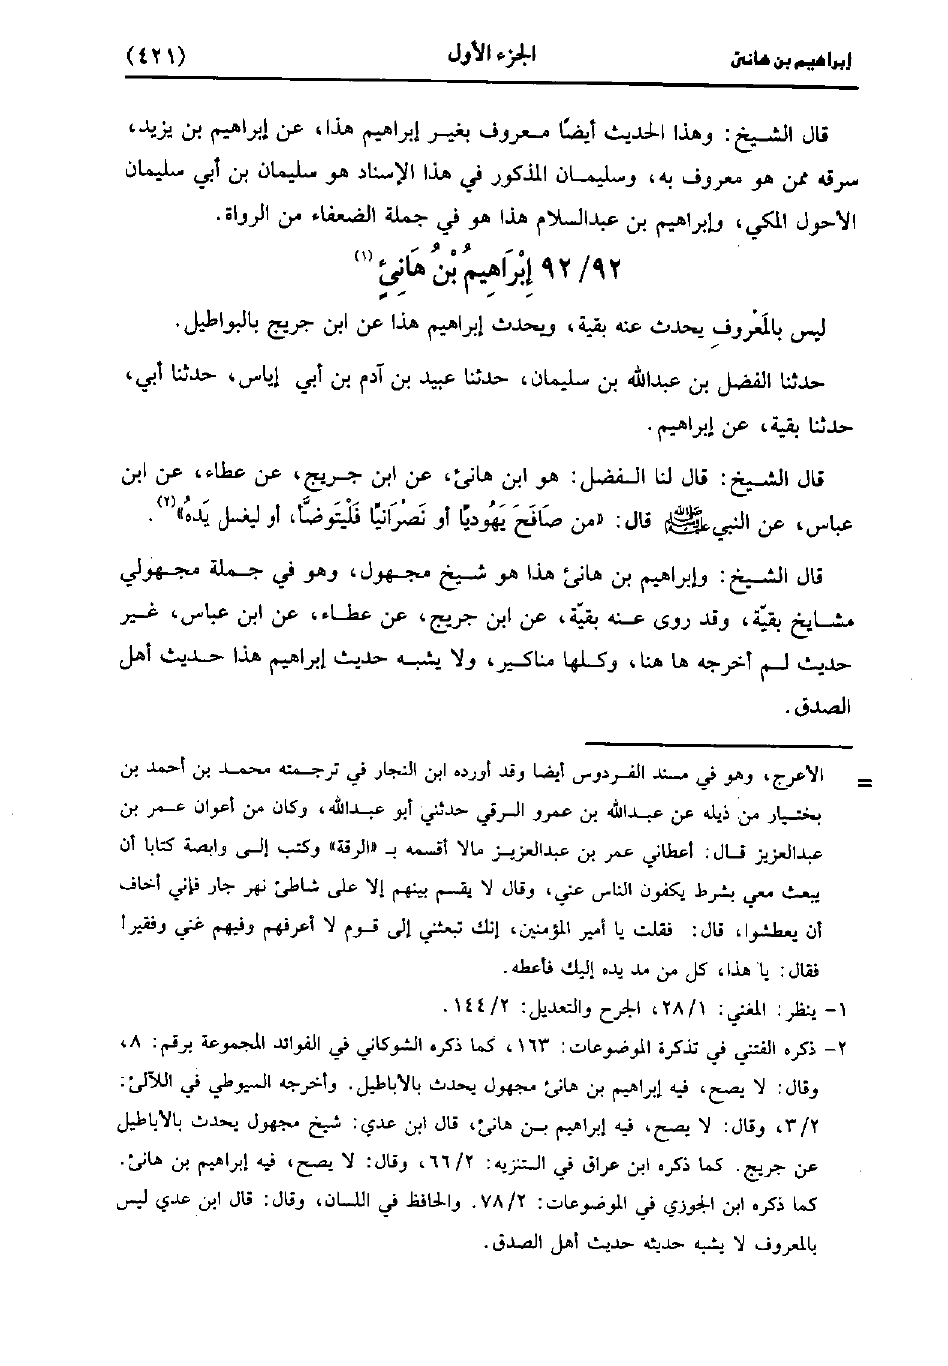 إبراهيم بن هانئ
الجزء الأول
(٤٢١)
قال الشيخ: وهذا الحديث أيضًا معروف بغير إبراهيم هذا، عن إبراهيم بن يزيد،
سرقه ممن هو معروف به، وسليمان المذكور في هذا الإسناد هو سليمان بن أبي سليمان
الأحول المكي، وإبراهيم بن عبدالسلام هذا هو في جملة الضعفاء من الرواة.
٩٢/ ٩٢ إِبْرَاهِيمُ بْنُ هَانِئٍ (١)
ليس بالمَعْروفِ يحدث عنه بقية، ويحدث إبراهيم هذا عن ابن جريج بالبواطيل.
حدثنا الفضل بن عبدالله بن سليمان، حدثنا عبيد بن آدم بن أبي إياس، حدثنا أبي،
حدثنا بقية، عن إبراهيم.
قال الشيخ: قال لنا الفضل: هو ابن هانئ، عن ابن جريج، عن عطاء، عن ابن
عباس، عن النبي ﷺ قال: «من صَافَحَ يَهُوديًا أو نَصْرَانيًا فَلْيَتَوضَّأ، أو ليغسل يَدهُ»(٢).
قال الشيخ: وإبراهيم بن هانئ هذا هو شيخ مجهول، وهو في جملة مجهولي
مشايخ بقيّة، وقد روى عنه بقيّة، عن ابن جريج، عن عطاء، عن ابن عباس، غير
حديث لم أخرجه ها هنا، وكلها مناكير، ولا يشبه حديث إبراهيم هذا حديث أهل
الصدق.
= الأعرج، وهو في مسند الفردوس أيضا وقد أورده ابن النجار في ترجمته محمد بن أحمد بن
بختيار من ذيله عن عبدالله بن عمرو الرقي حدثني أبو عبدالله، وكان من أعوان عمر بن
عبدالعزيز قال: أعطاني عمر بن عبدالعزيز مالا أقسمه بـ «الرقة» وكتب إلى وابصة كتابا أن
يبعث معي بشرط يكفون الناس عني، وقال لا يقسم بينهم إلا على شاطئ نهر جار فإني أخاف
أن يعطشوا، قال: فقلت يا أمير المؤمنين، إنك تبعثني إلى قوم لا أعرفهم وفيهم غني وفقيرا
فقال: يا هذا، كل من مد يده إليك فأعطه.
١- ينظر: المغني: ٢٨/١، الجرح والتعديل: ١٤٤/٢.
٢- ذكره الفتني في تذكرة الموضوعات: ١٦٣، كما ذكره الشوكاني في الفوائد المجموعة برقم: ٨،
وقال: لا يصح، فيه إبراهيم بن هانئ مجهول يحدث بالأباطيل. وأخرجه السيوطي في اللآلئ:
٣/٢، وقال: لا يصح، فيه إبراهيم بن هانئ، قال ابن عدي: شيخ مجهول يحدث بالأباطيل
عن جريج. كما ذكره ابن عراق في التنزيه: ٦٦/٢، وقال: لا يصح، فيه إبراهيم بن هانئ.
كما ذكره ابن الجوزي في الموضوعات: ٧٨/٢. والحافظ في اللسان، وقال: قال ابن عدي ليس
بالمعروف لا يشبه حديثه حديث أهل الصدق.